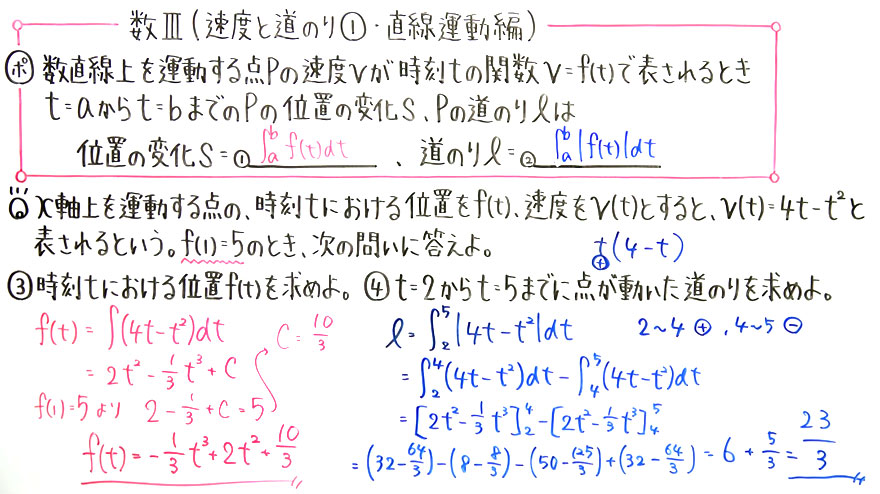 数Ⅲ(速度と道のり①・直線運動編)
ポ 数直線上を運動する点Pの速度vが時刻tの関数v=f(t)で表されるとき
t=aからt=bまでのPの位置の変化s、Pの道のりlは
位置の変化s=①∫_a^b f(t)dt 、道のりl=②∫_a^b|f(t)|dt
x軸上を運動する点の、時刻tにおける位置をf(t)、速度をv(t)とすると、v(t)=4t-t²と
表されるという。f(1)=5のとき、次の問いに答えよ。 t(4-t)
⊕
③時刻tにおける位置f(t)を求めよ。
f(t)=∫(4t-t²)dt
=2t²-1/3t³+C
f(1)=5より 2-1/3+C=5
C=10/3
f(t)=-1/3t³+2t²+10/3
④t=2からt=5までに点が動いた道のりを求めよ。
l=∫_2^5|4t-t²|dt 2~4⊕,4~5⊖
=∫_2^4(4t-t²)dt-∫_4^5(4t-t²)dt
=[2t²-1/3t³]_2^4-[2t²-1/3t³]_4^5
=(32-64/3)-(8-8/3)-(50-125/3)+(32-64/3)=6+5/3=23/3